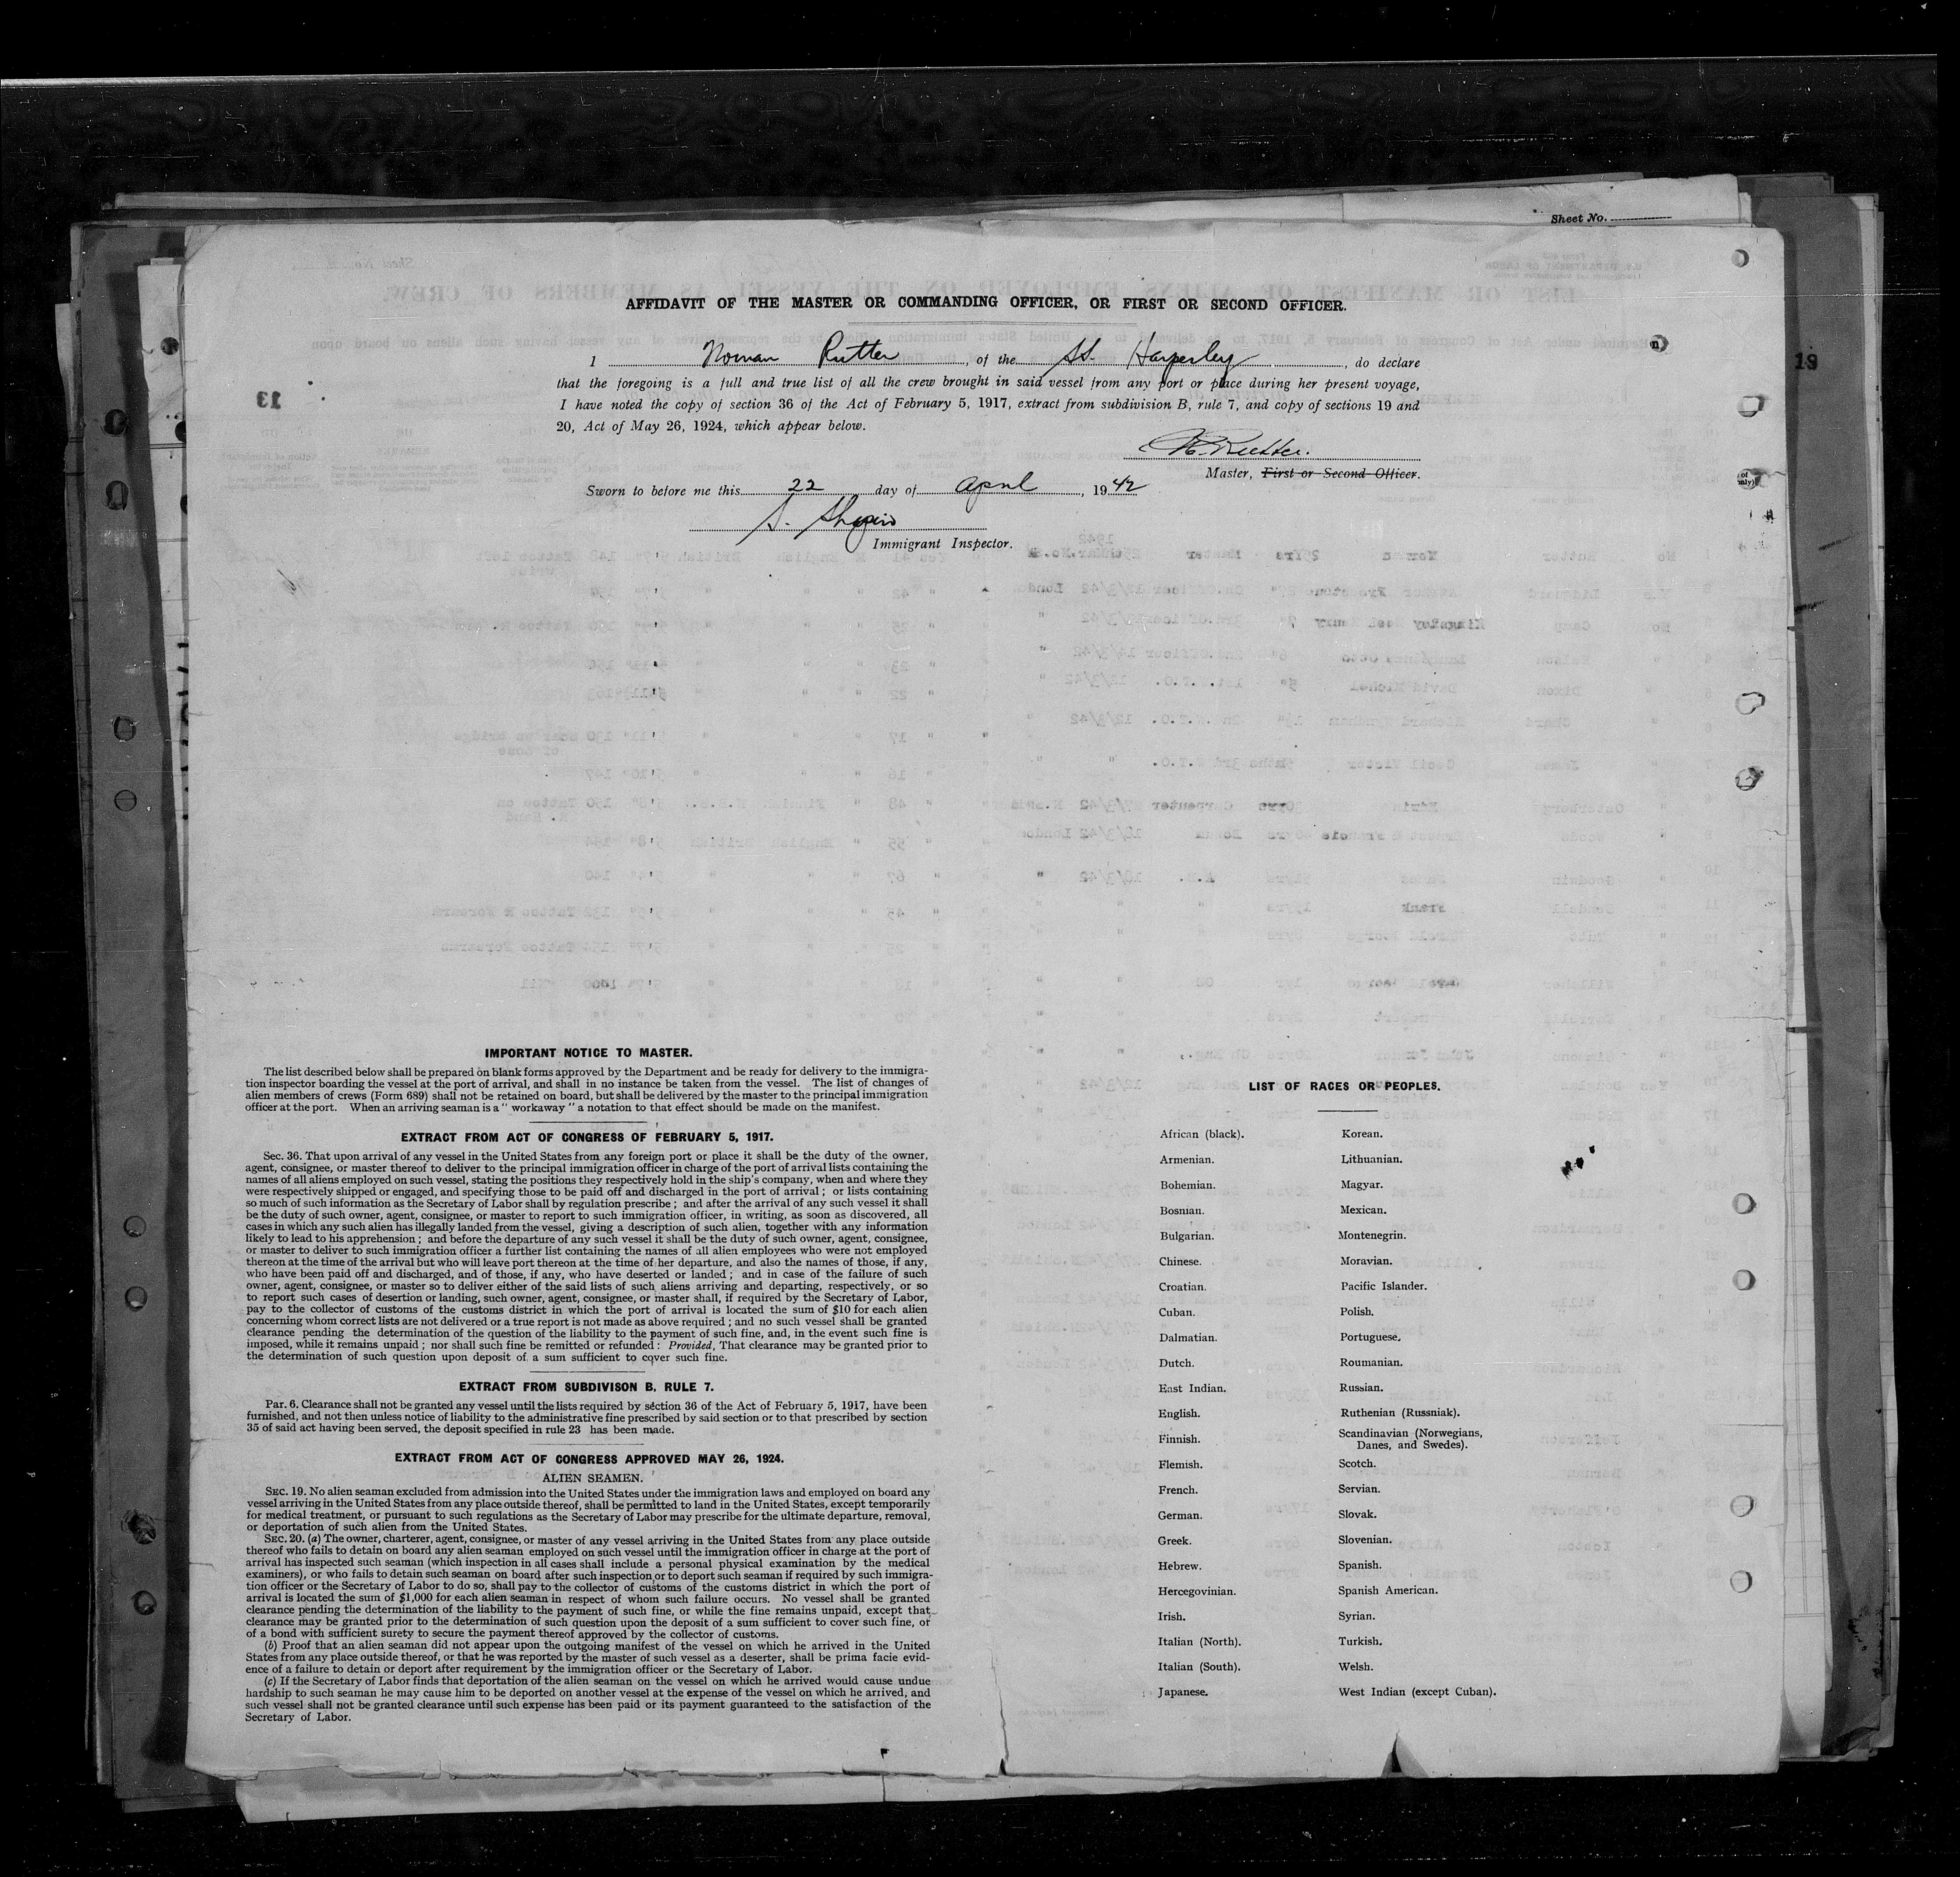 Sheet No.
AFFIDAVIT OF THE MASTER OR COMMANDING OFFICER, OR FIRST OR SECOND OFFICER.
I Norman Rutter, of the SS. Harpesley, do declare
that the foregoing is a full and true list of all the crew brought in said vessel from any port or place during her present voyage,
I have noted the copy of section 36 of the Act of February 5, 1917, extract from subdivision B, rule 7, and copy of sections 19 and
20, Act of May 26, 1924, which appear below.
N. Rutter.
Master, First or Second Officer.
Sworn to before me this 22 day of April, 1942
S. Shapiro
Immigrant Inspector.
13
19
IMPORTANT NOTICE TO MASTER.
The list described below shall be prepared on blank forms approved by the Department and be ready for delivery to the immigra-
tion inspector boarding the vessel at the port of arrival, and shall in no instance be taken from the vessel. The list of changes of
alien members of crews (Form 689) shall not be retained on board, but shall be delivered by the master to the principal immigration
officer at the port. When an arriving seaman is a " workaway " a notation to that effect should be made on the manifest.
EXTRACT FROM ACT OF CONGRESS OF FEBRUARY 5, 1917.
Sec. 36. That upon arrival of any vessel in the United States from any foreign port or place it shall be the duty of the owner,
agent, consignee, or master thereof to deliver to the principal immigration officer in charge of the port of arrival lists containing the
names of all aliens employed on such vessel, stating the positions they respectively hold in the ship's company, when and where they
were respectively shipped or engaged, and specifying those to be paid off and discharged in the port of arrival ; or lists containing
so much of such information as the Secretary of Labor shall by regulation prescribe ; and after the arrival of any such vessel it shall
be the duty of such owner, agent, consignee, or master to report to such immigration officer, in writing, as soon as discovered, all
cases in which any such alien has illegally landed from the vessel, giving a description of such alien, together with any information
likely to lead to his apprehension ; and before the departure of any such vessel it shall be the duty of such owner, agent, consignee,
or master to deliver to such immigration officer a further list containing the names of all alien employees who were not employed
thereon at the time of the arrival but who will leave port thereon at the time of her departure, and also the names of those, if any,
who have been paid off and discharged, and of those, if any, who have deserted or landed ; and in case of the failure of such
owner, agent, consignee, or master so to deliver either of the said lists of such aliens arriving and departing, respectively, or so
to report such cases of desertion or landing, such owner, agent, consignee, or master shall, if required by the Secretary of Labor,
pay to the collector of customs of the customs district in which the port of arrival is located the sum of $10 for each alien
concerning whom correct lists are not delivered or a true report is not made as above required ; and no such vessel shall be granted
clearance pending the determination of the question of the liability to the payment of such fine, and, in the event such fine is
imposed, while it remains unpaid ; nor shall such fine be remitted or refunded : Provided, That clearance may be granted prior to
the determination of such question upon deposit of a sum sufficient to cover such fine.
EXTRACT FROM SUBDIVISON B, RULE 7.
Par. 6. Clearance shall not be granted any vessel until the lists required by section 36 of the Act of February 5, 1917, have been
furnished, and not then unless notice of liability to the administrative fine prescribed by said section or to that prescribed by section
35 of said act having been served, the deposit specified in rule 23 has been made.
EXTRACT FROM ACT OF CONGRESS APPROVED MAY 26, 1924.
ALIEN SEAMEN.
SEC. 19. No alien seaman excluded from admission into the United States under the immigration laws and employed on board any
vessel arriving in the United States from any place outside thereof, shall be permitted to land in the United States, except temporarily
for medical treatment, or pursuant to such regulations as the Secretary of Labor may prescribe for the ultimate departure, removal,
or deportation of such alien from the United States.
SEC. 20. (a) The owner, charterer, agent, consignee, or master of any vessel arriving in the United States from any place outside
thereof who fails to detain on board any alien seaman employed on such vessel until the immigration officer in charge at the port of
arrival has inspected such seaman (which inspection in all cases shall include a personal physical examination by the medical
examiners), or who fails to detain such seaman on board after such inspection or to deport such seaman if required by such immigra-
tion officer or the Secretary of Labor to do so, shall pay to the collector of customs of the customs district in which the port of
arrival is located the sum of $1,000 for each alien seaman in respect of whom such failure occurs. No vessel shall be granted
clearance pending the determination of the liability to the payment of such fine, or while the fine remains unpaid, except that
clearance may be granted prior to the determination of such question upon the deposit of a sum sufficient to cover such fine, or
of a bond with sufficient surety to secure the payment thereof approved by the collector of customs.
(b) Proof that an alien seaman did not appear upon the outgoing manifest of the vessel on which he arrived in the United
States from any place outside thereof, or that he was reported by the master of such vessel as a deserter, shall be prima facie evid-
ence of a failure to detain or deport after requirement by the immigration officer or the Secretary of Labor.
(c) If the Secretary of Labor finds that deportation of the alien seaman on the vessel on which he arrived would cause undue
hardship to such seaman he may cause him to be deported on another vessel at the expense of the vessel on which he arrived, and
such vessel shall not be granted clearance until such expense has been paid or its payment guaranteed to the satisfaction of the
Secretary of Labor.
LIST OF RACES OR PEOPLES.
African (black). Korean.
Armenian. Lithuanian.
Bohemian. Magyar.
Bosnian. Mexican.
Bulgarian. Montenegrin.
Chinese. Moravian.
Croatian. Pacific Islander.
Cuban. Polish.
Dalmatian. Portuguese.
Dutch. Roumanian.
East Indian. Russian.
English. Ruthenian (Russniak).
Finnish. Scandinavian (Norwegians,
Danes, and Swedes).
Flemish. Scotch.
French. Servian.
German. Slovak.
Greek. Slovenian.
Hebrew. Spanish.
Hercegovinian. Spanish American.
Irish. Syrian.
Italian (North). Turkish.
Italian (South). Welsh.
Japanese. West Indian (except Cuban).